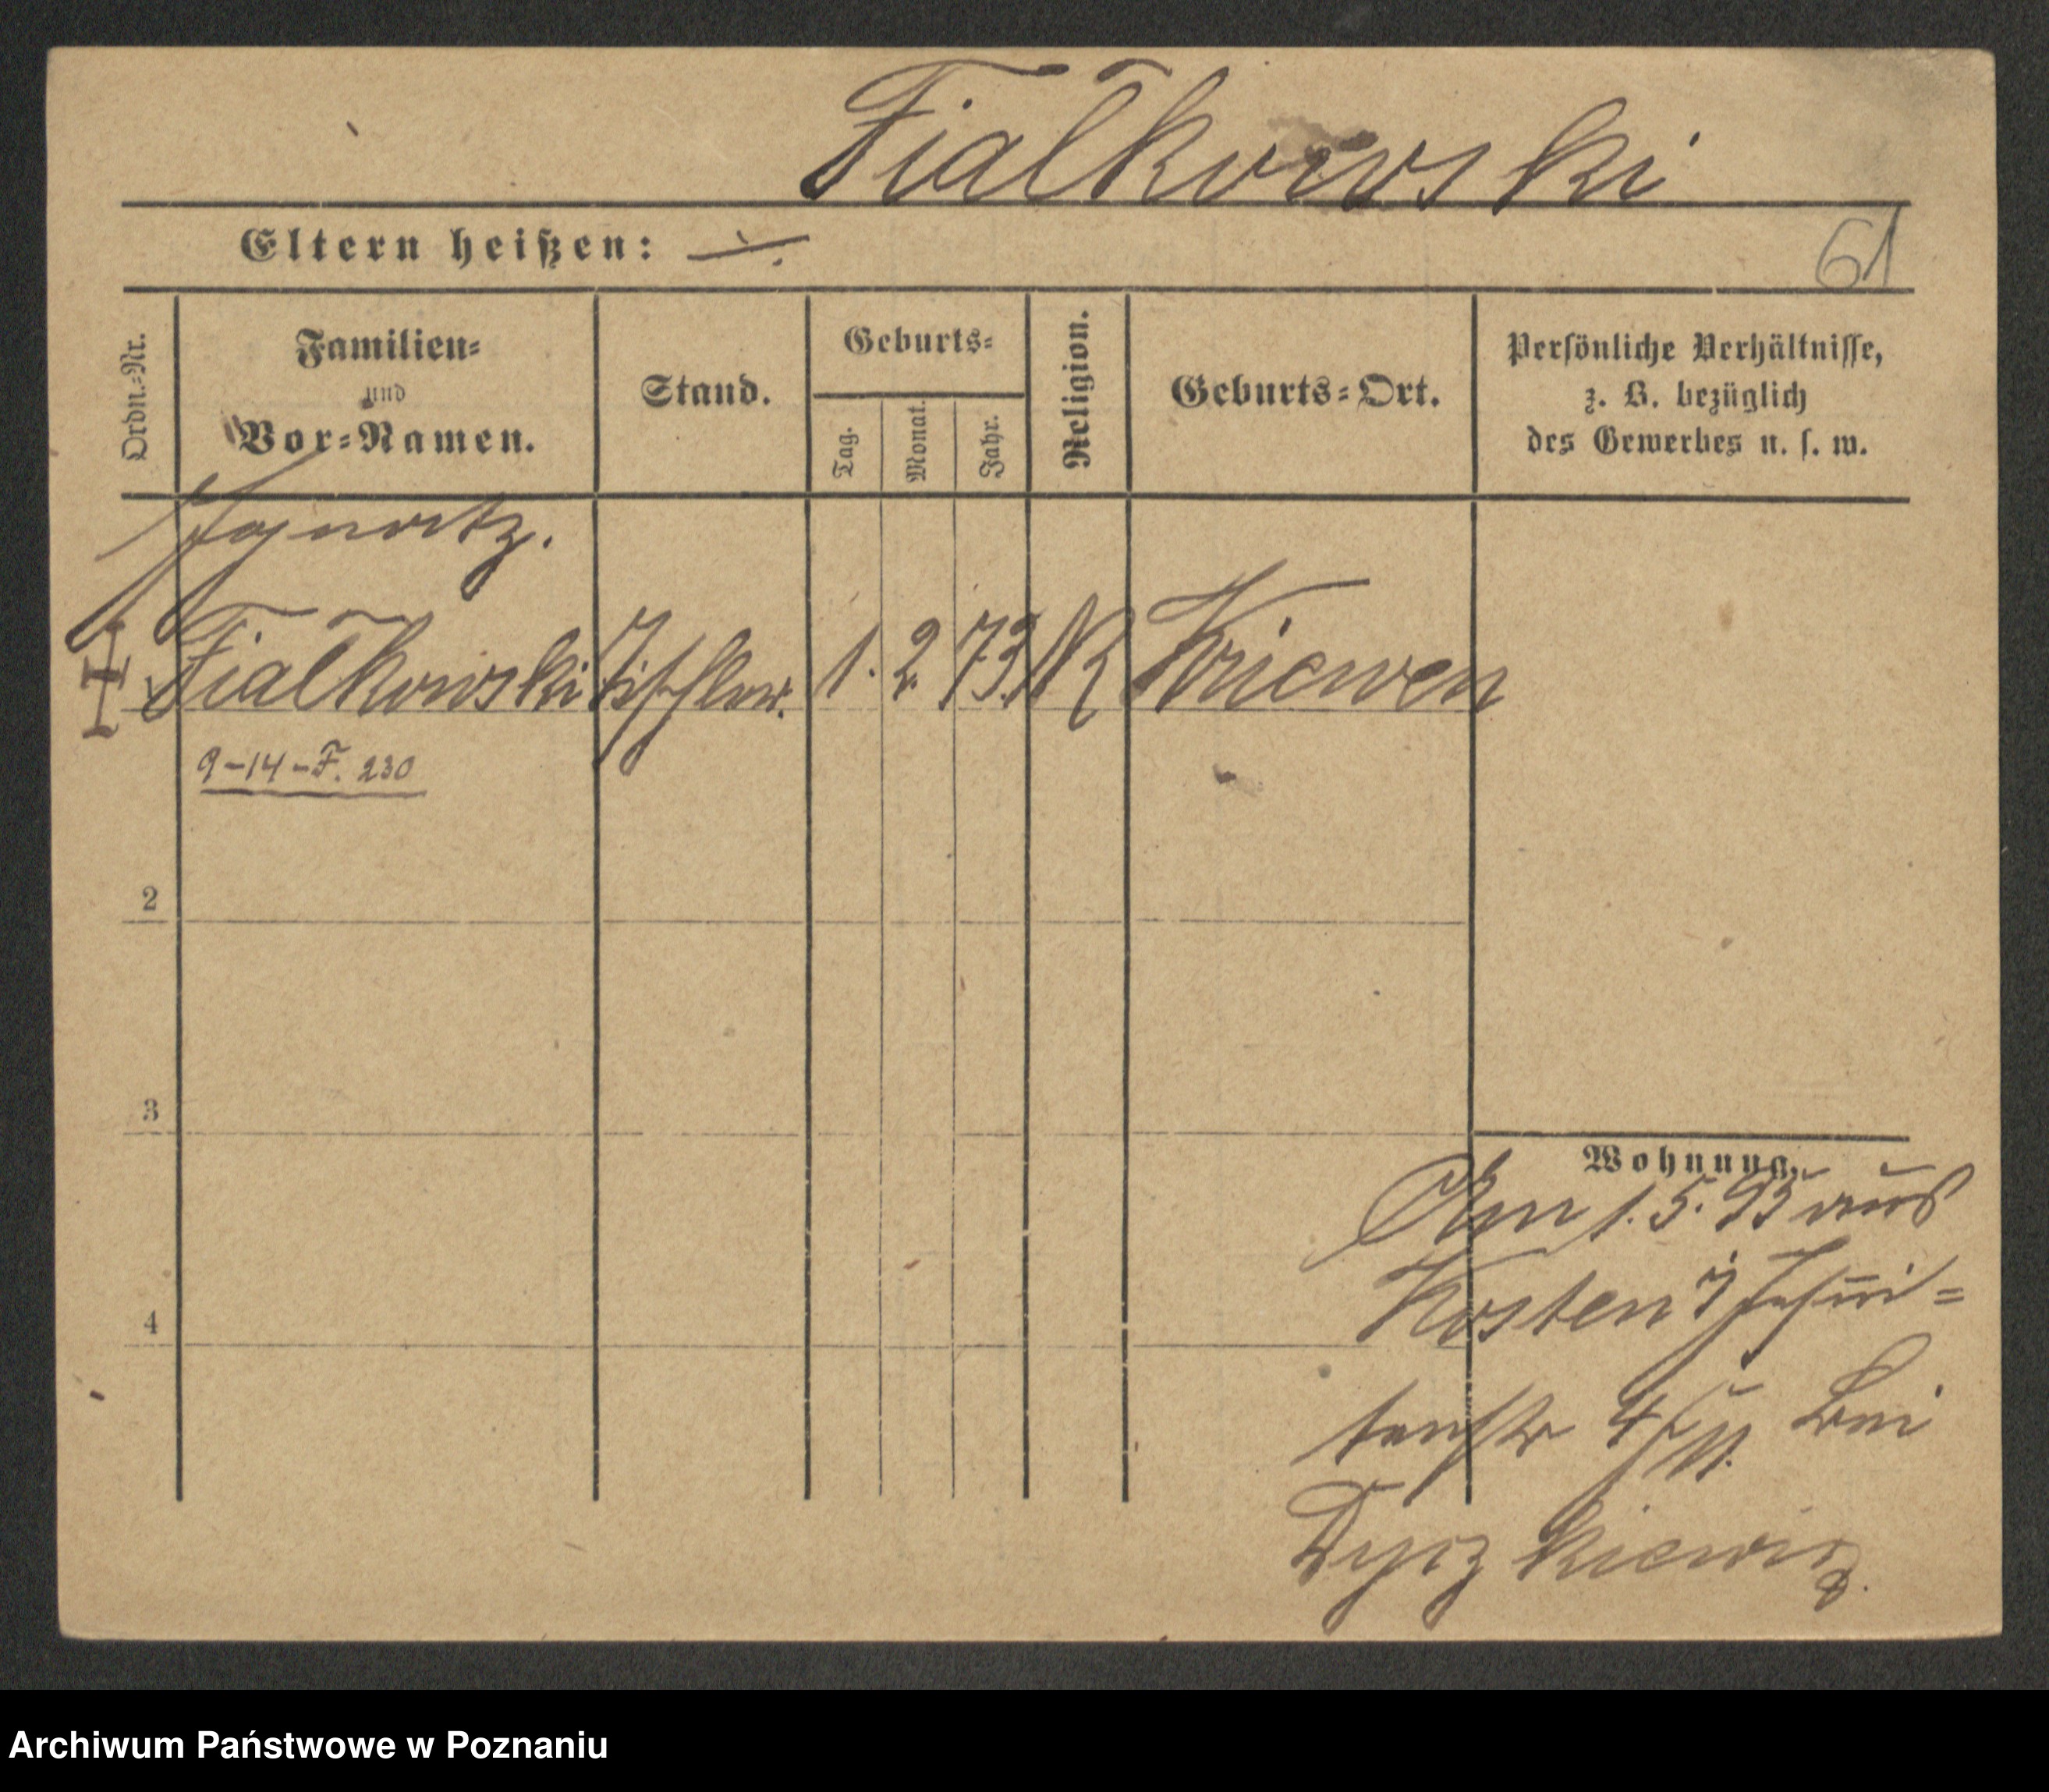 Fialkowski
Eltern heißen: ÷
61
Ordn.-Nr.
Familien-
und
Vor-Namen.
Stand.
Geburts-
Tag.
Monat.
Jahr.
Religion.
Geburts-Ort.
Persönliche Verhältnisse,
z. B. bezüglich
des Gewerbes u. s. w.
Ignatz.
Fialkowski Tischler. 1. 2. 73. K Kriewen
9-14-F. 230
2
3
4
Wohnung.
Am 1. 5. 93 aus
Kosten Jesui-
tenstr 4 bei
Archiwum Państwowe w Poznaniu